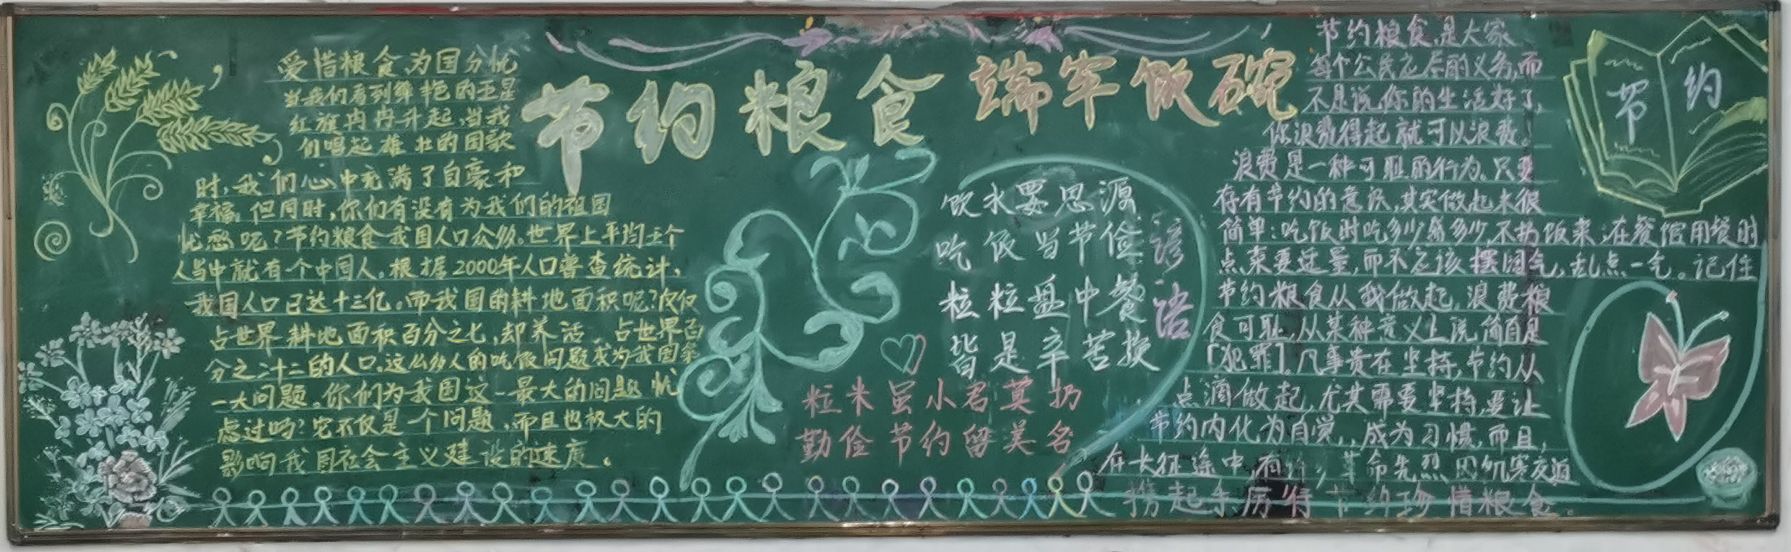 节约粮食 端牢饭碗
爱惜粮食为国分忧
当我们看到鲜艳的五星
红旗冉冉升起,当我
们唱起雄壮的国歌
时,我们心中充满了自豪和
幸福,但同时,你们有没有为我们的祖国
忧愁呢?节约粮食我国人口众多。世界上平均五个
人当中就有一个中国人。根据2000年人口普查统计,
我国人口已达十三亿。而我国的耕地面积呢?仅仅
占世界耕地面积百分之七,却养活占世界百
分之二十二的人口。这么多人的吃饭问题成为我国第
一大问题。你们为我国这一最大的问题忧
虑过吗?它不仅是一个问题,而且也极大的
影响我国社会主义建设的速度。
饮水要思源
吃饭当节俭
粒粒盘中餐
皆是辛苦换
谚语
粒米虽小君莫扔
勤俭节约留美名
节约粮食是大家
每个公民应尽的义务,而
不是说你的生活好了,
你浪费得起就可以浪费!
浪费是一种可耻的行为,只要
存有节约的意识,其实做起来很
简单:吃饭时吃多少盛多少不扔饭菜;在餐馆用餐时
点菜要适量,而不应该摆阔气,乱点一气。记住
节约粮食从我做起,浪费粮
食可耻,从某种意义上说,简直是
「犯罪」,凡事贵在坚持,节约从
点滴做起,尤其需要坚持,要让
节约内化为自觉,成为习惯,而且,
在长征途中有许,革命先烈因饥寒交迫
携起手厉行节约珍惜粮食
节约